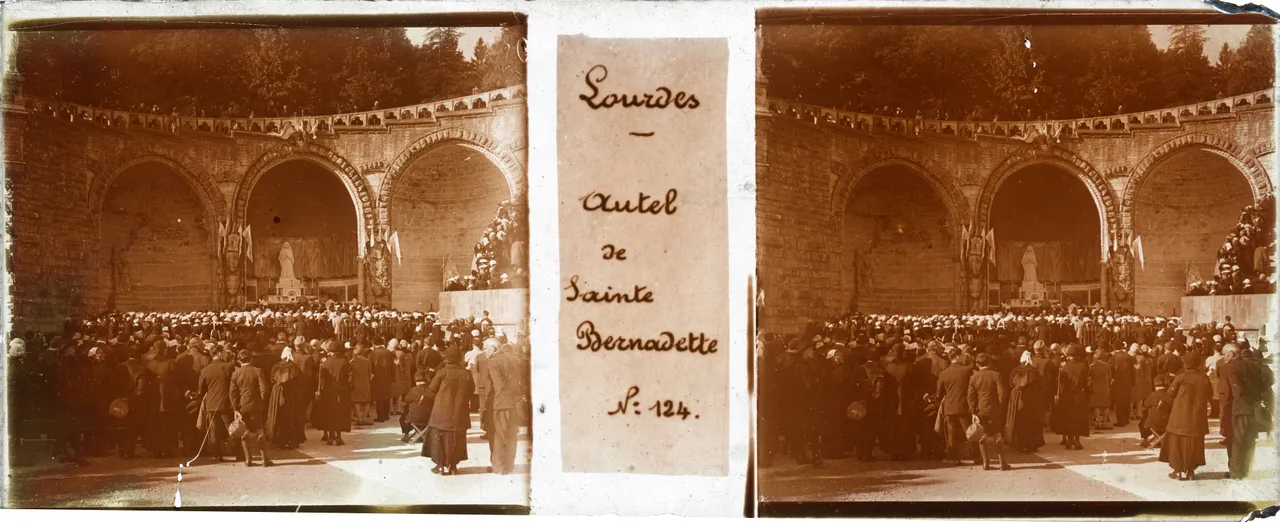 Lourdes
—
Autel
de
Sainte
Bernadette
N: 124.